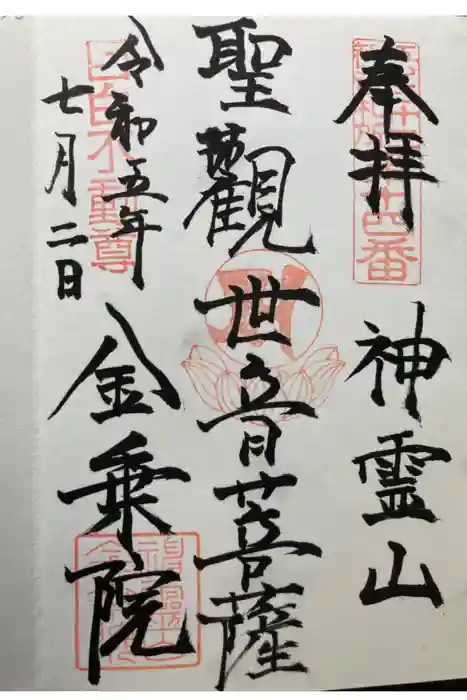 奉拝
神霊山
聖観世音菩薩
令和五年
七月二日
金乗院
目白不動尊